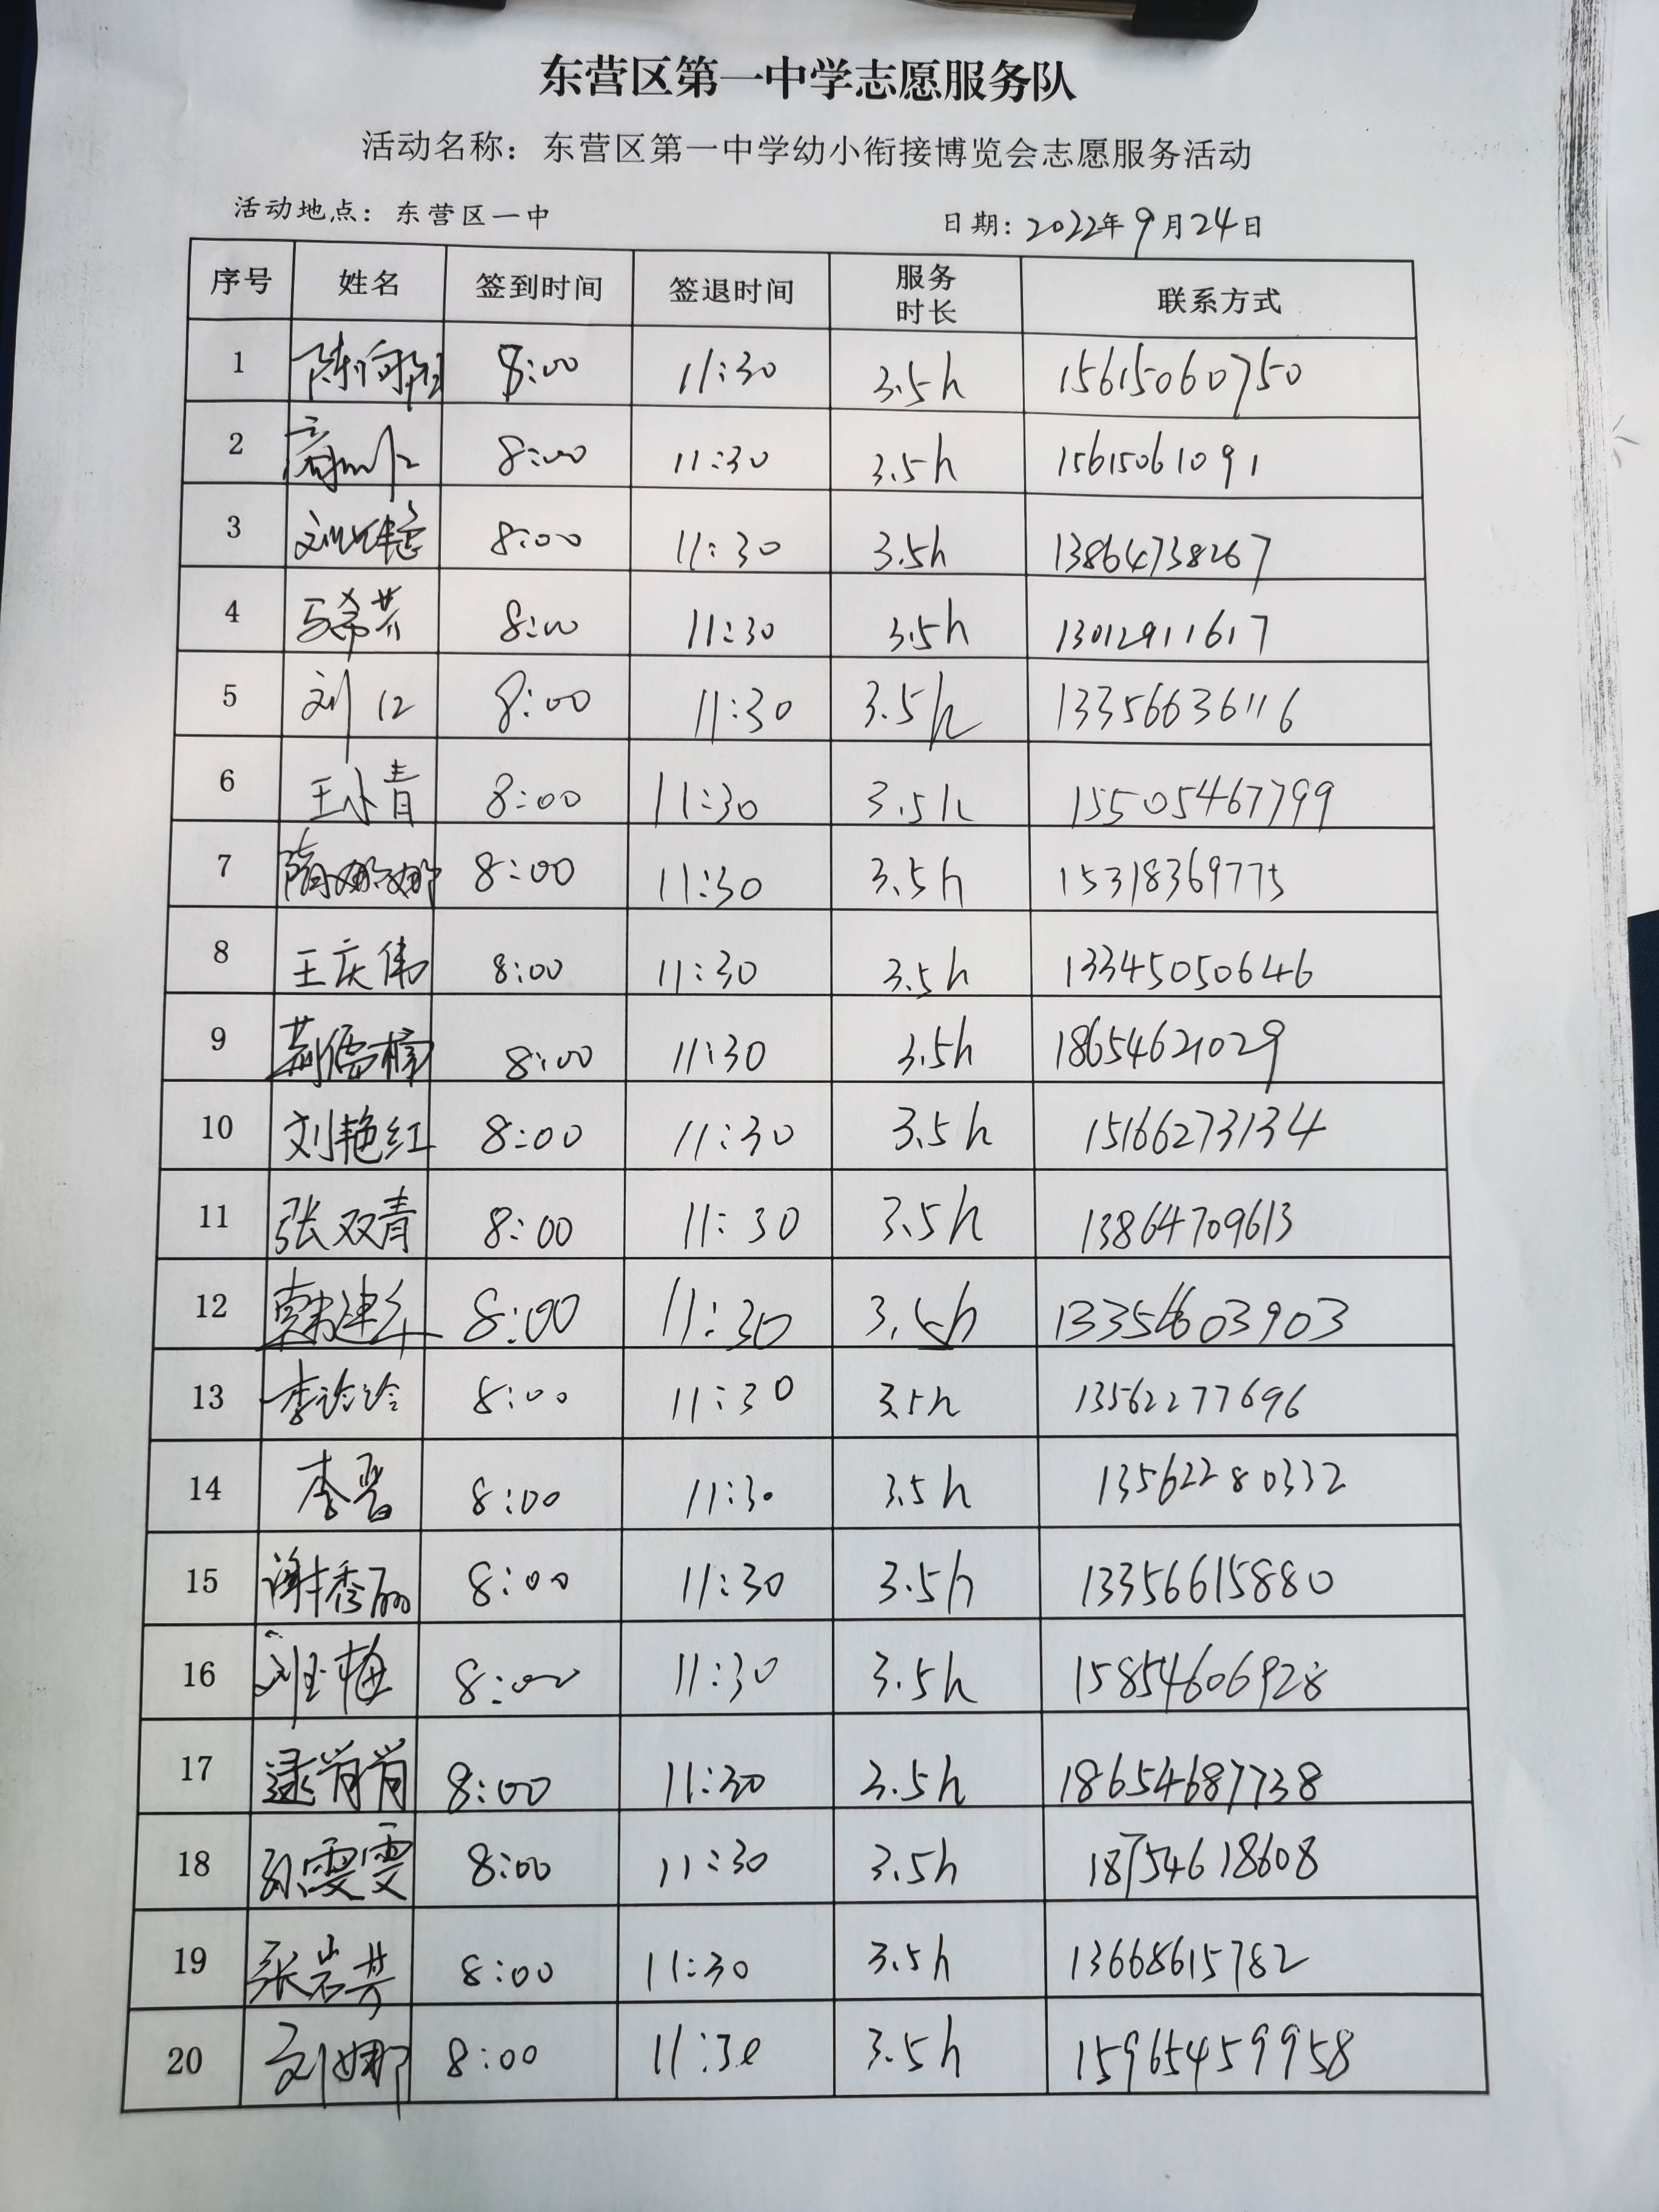 东营区第一中学志愿服务队
活动名称：东营区第一中学幼小衔接博览会志愿服务活动
活动地点：东营区一中 日期：2022年9月24日
序号 姓名 签到时间 签退时间 服务时长 联系方式
1 8:00 11:30 3.5h 15615060750
2 8:00 11:30 3.5h 15615061091
3 8:00 11:30 3.5h 13864738267
4 马希芳 8:00 11:30 3.5h 13012911617
5 刘 8:00 11:30 3.5h 13356636116
6 王小青 8:00 11:30 3.5h 15505467799
7 隋娜娜 8:00 11:30 3.5h 15318369775
8 王庆伟 8:00 11:30 3.5h 13345050646
9 荆儒楠 8:00 11:30 3.5h 18654621029
10 刘艳红 8:00 11:30 3.5h 15166273134
11 张双青 8:00 11:30 3.5h 13864709613
12 8:00 11:30 3.5h 13356603903
13 李 8:00 11:30 3.5h 13562277696
14 李晋 8:00 11:30 3.5h 13562280332
15 谢秀丽 8:00 11:30 3.5h 13356615880
16 梅 8:00 11:30 3.5h 15854606928
17 逯肖肖 8:00 11:30 3.5h 18654687738
18 孙雯雯 8:00 11:30 3.5h 18754618608
19 张岩芳 8:00 11:30 3.5h 13668615782
20 刘娜 8:00 11:30 3.5h 15965459958